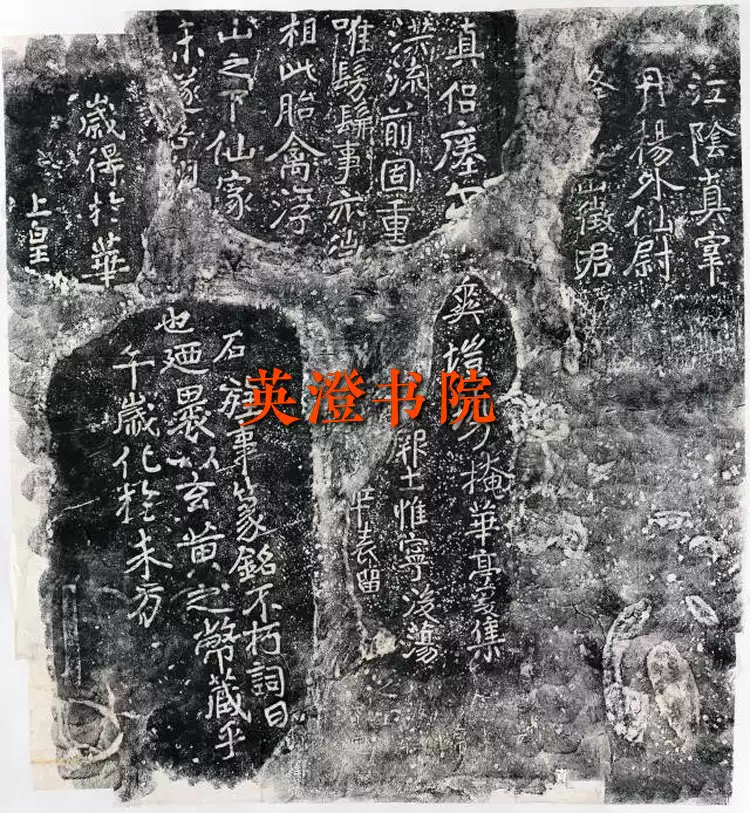 上皇
歲得於華
未遂吾
山之下仙家
相此胎禽浮
唯髣髴事亦
洪流前固重
真侶瘞尔
千歲化於朱方
也迺裹以玄黄之幣藏乎
石旌事篆銘不朽詞曰
表留
土惟寧後蕩
爽塏掩華亭爰集
山徵君
丹楊外仙尉
江陰真宰
英澄书院